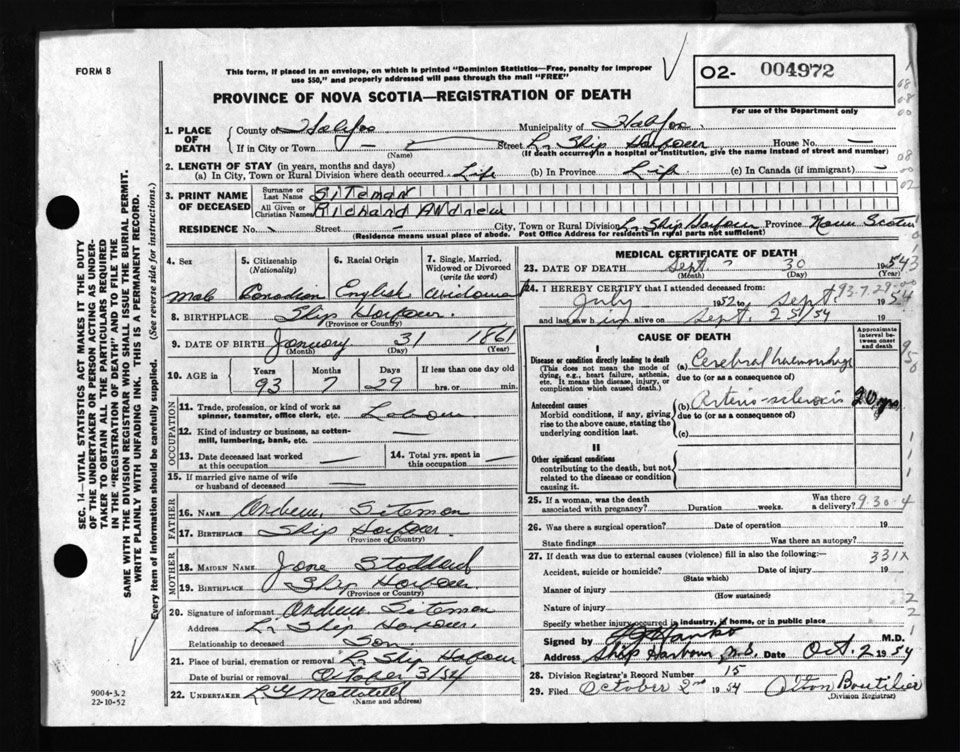 FORM 8
This form, if placed in an envelope, on which is printed "Dominion Statistics—Free, penalty for improper
use $50," and properly addressed will pass through the mail "FREE"
02- 004972
For use of the Department only
PROVINCE OF NOVA SCOTIA—REGISTRATION OF DEATH
1. PLACE OF DEATH
County of Halifax Municipality of Halifax
If in City or Town — (Name) Street Lr Ship Harbour House No. —
(If death occurred in a hospital or institution, give the name instead of street and number)
2. LENGTH OF STAY (in years, months and days)
(a) In City, Town or Rural Division where death occurred Life (b) In Province Life (c) In Canada (if immigrant) —
3. PRINT NAME OF DECEASED
Surname or Last Name SITEMAN
All Given or Christian Names Richard Andrew
RESIDENCE No. Street — City, Town or Rural Division Lr Ship Harbour Province Nova Scotia
(Residence means usual place of abode. Post Office Address for residents in rural parts not sufficient)
4. Sex Male
5. Citizenship (Nationality) Canadian
6. Racial Origin English
7. Single, Married, Widowed or Divorced (write the word) Widowed
8. BIRTHPLACE Ship Harbour
(Province or Country)
9. DATE OF BIRTH January 31 1861
(Month) (Day) (Year)
10. AGE in Years 93 Months 7 Days 29 If less than one day old hrs. or min.
OCCUPATION
11. Trade, profession, or kind of work as spinner, teamster, office clerk, etc. Labour
12. Kind of industry or business, as cotton-mill, lumbering, bank, etc. —
13. Date deceased last worked at this occupation —
14. Total yrs. spent in this occupation —
15. If married give name of wife or husband of deceased —
FATHER
16. NAME Andrew Siteman
17. BIRTHPLACE Ship Harbour
(Province or Country)
MOTHER
18. MAIDEN NAME Jane Stoddard
19. BIRTHPLACE Ship Harbour
(Province or Country)
20. Signature of informant Andrew Siteman
Address Lr Ship Harbour
Relationship to deceased Son
21. Place of burial, cremation or removal Lr Ship Harbour
Date of burial or removal October 3/54
22. UNDERTAKER
(Name and address)
MEDICAL CERTIFICATE OF DEATH
23. DATE OF DEATH Sept 30 1954
(Month) (Day) (Year)
93-7-29
24. I HEREBY CERTIFY that I attended deceased from:
July 1952 to Sept 1954
and last saw him alive on Sept. 25/54 19
CAUSE OF DEATH
Approximate interval between onset and death
I
Disease or condition directly leading to death
(This does not mean the mode of dying, e.g., heart failure, asthenia, etc. It means the disease, injury, or complication which caused death.)
(a) Cerebral haemorrhage
due to (or as a consequence of)
Antecedent causes
Morbid conditions, if any, giving rise to the above cause, stating the underlying condition last.
(b) Arterio-sclerosis 20 yrs
due to (or as a consequence of)
(c)
II
Other significant conditions
contributing to the death, but not related to the disease or condition causing it.
25. If a woman, was the death associated with pregnancy? Duration weeks. Was there a delivery?
930-4
26. Was there a surgical operation? Date of operation 19
State findings Was there an autopsy?
27. If death was due to external causes (violence) fill in also the following:—
331X
Accident, suicide or homicide? Date of injury 19
(State which)
Manner of injury
(How sustained)
Nature of injury
Specify whether injury occurred in industry, in home, or in public place
Signed by M.D.
Address Ship Harbour N.S. Date Oct. 2 1954
28. Division Registrar's Record Number 15
29. Filed October 2nd 1954 Alton Boutilier
(Division Registrar)
SEC. 14—VITAL STATISTICS ACT MAKES IT THE DUTY
OF THE UNDERTAKER OR PERSON ACTING AS UNDER-
TAKER TO OBTAIN ALL THE PARTICULARS REQUIRED
IN THE "REGISTRATION OF DEATH" AND TO FILE THE
SAME WITH THE DIVISION REGISTRAR WHO SHALL ISSUE THE BURIAL PERMIT.
WRITE PLAINLY WITH UNFADING INK. THIS IS A PERMANENT RECORD.
Every item of information should be carefully supplied. (See reverse side for instructions.)
9004-3.2
22-10-52